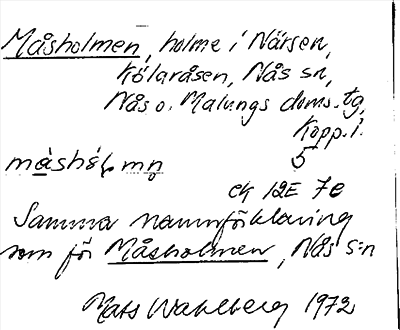 Måsholmen, holme i Närsen,
Kölaråsen, Nås sn,
Nås o. Malungs doms. tg,
Kopp. l.
5
ek 12E 7e
Samma namnförklaring
som för Måsholmen, Nås s:n
Mats Wahlberg 1972